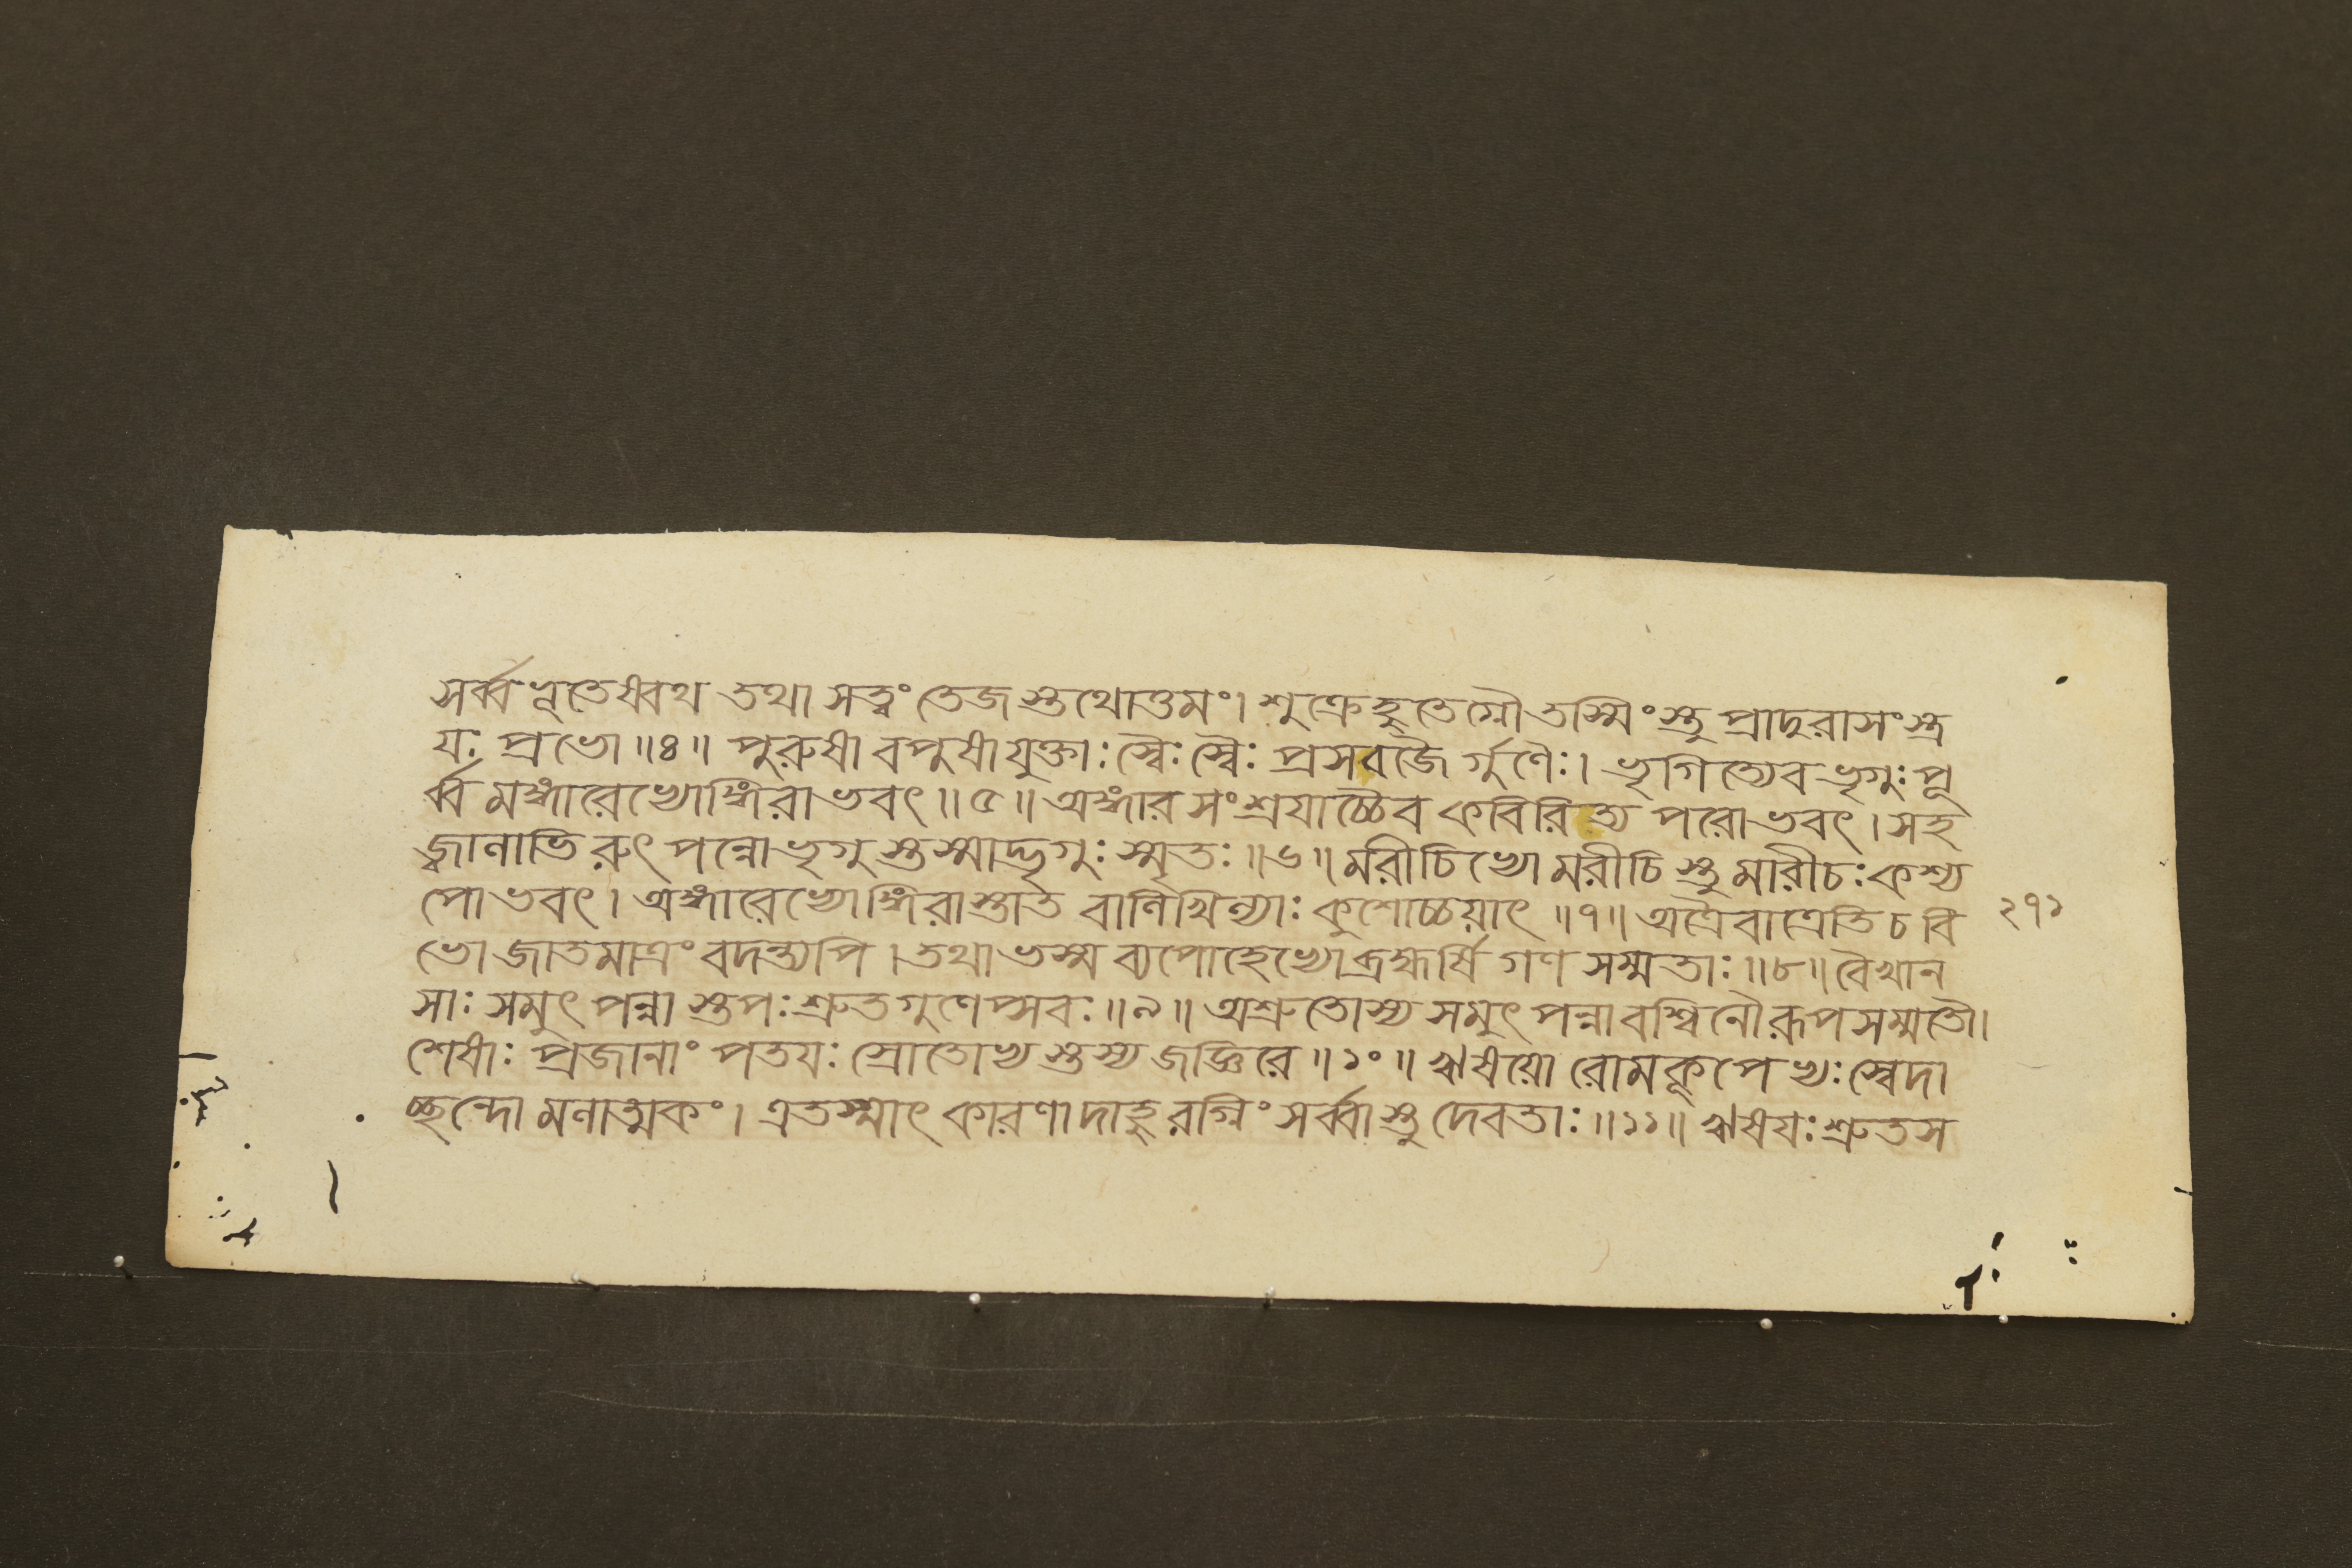 সর্ব্বভূতেষ্বথ তথা সত্ত্বং তেজস্তথোত্তমং। শুক্রেহুতেগ্নৌ তস্মিংস্তু প্রাদুরাসংস্ত্র
যঃ প্রভো ॥৪॥ পুরুষা বপুষাযুক্তাঃ স্বৈঃ স্বৈঃ প্রসবজৈ র্গুণৈঃ। ভৃগিত্যেব ভৃগুঃ পূ
র্ব্ব মঙ্গারেভ্যোঙ্গিরাভবৎ ॥৫॥ অঙ্গারসংশ্রযাচ্চৈব কবিরিত্য পরোভবৎ। সহ
জ্বালাভি রুৎপন্নো ভৃগু স্তস্মাদ্ভৃগুঃ স্মৃতঃ ॥৬॥ মরীচিভ্যো মরীচি স্তু মারীচঃ কশ্য
পোভবৎ। অঙ্গারেভ্যোঙ্গিরাস্তাত বালিখিল্যাঃ কুশোচ্চয়াৎ ॥৭॥ অত্রৈবাত্রেতি চ বি ২৭১
ভো জাতমাত্রং বদন্ত্যপি। তথা ভস্ম ব্যপোহেভ্যো ব্রহ্মর্ষি গণ সম্মতাঃ ॥৮॥ বৈখান
সাঃ সমুৎপন্না স্তপঃ শ্রুতগুণেপ্সবঃ ॥৯॥ অশ্রুতোস্য সমুৎপন্নাবশ্বিনৌ রূপসম্মতৌ।
শেষাঃ প্রজানাং পতযঃ স্রোতোভ্য স্তস্য জজ্ঞিরে ॥১০॥ ঋষয়ো রোমকূপেভ্যঃ স্বেদা
চ্ছন্দো মলাত্মকং। এতস্মাৎ কারণাদাহু রগ্নিং সর্ব্বাস্তু দেবতাঃ ॥১১॥ ঋষযঃ শ্রুতস